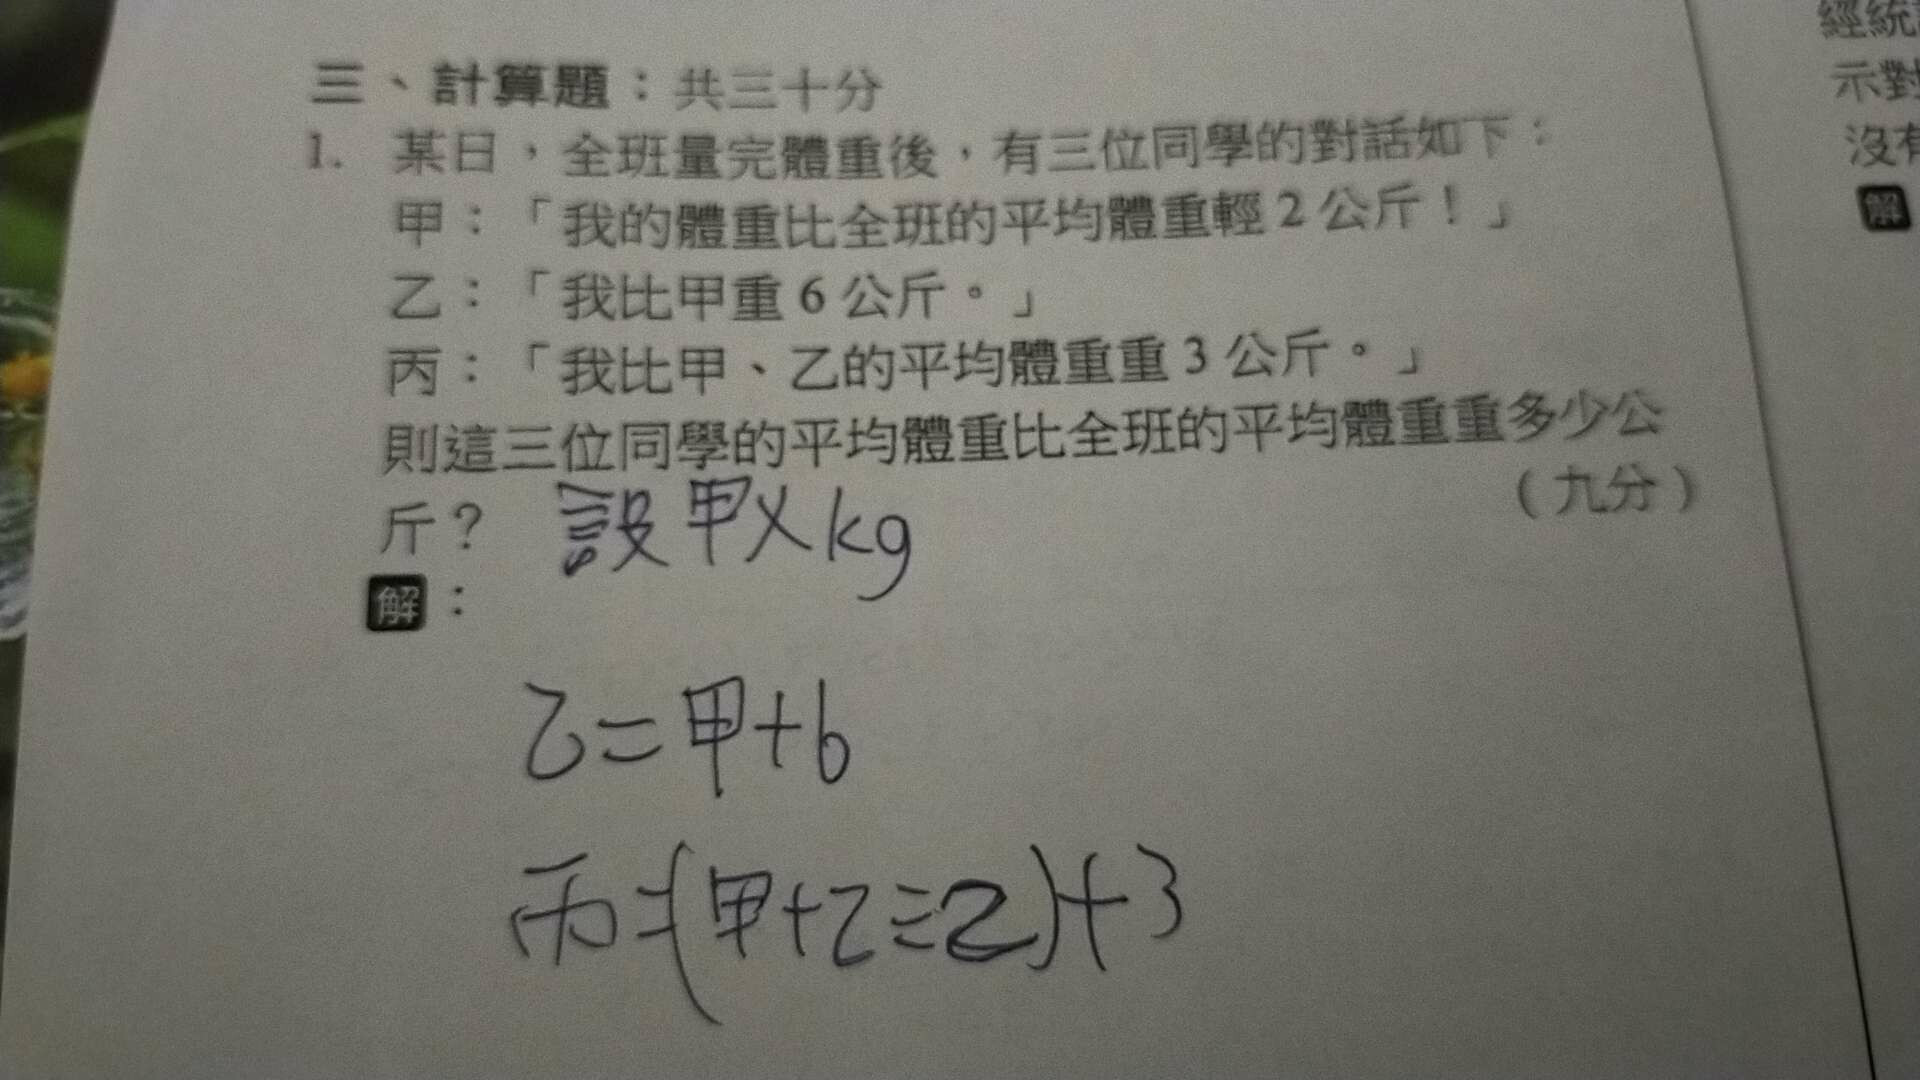 三、計算題：共三十分
1. 某日，全班量完體重後，有三位同學的對話如下：
甲：「我的體重比全班的平均體重輕2公斤！」
乙：「我比甲重6公斤。」
丙：「我比甲、乙的平均體重重3公斤。」
則這三位同學的平均體重比全班的平均體重重多少公
斤？ （九分）
設甲x kg
解：
乙=甲+6
丙=(甲+乙÷2)+3
經統
示對
沒有
解